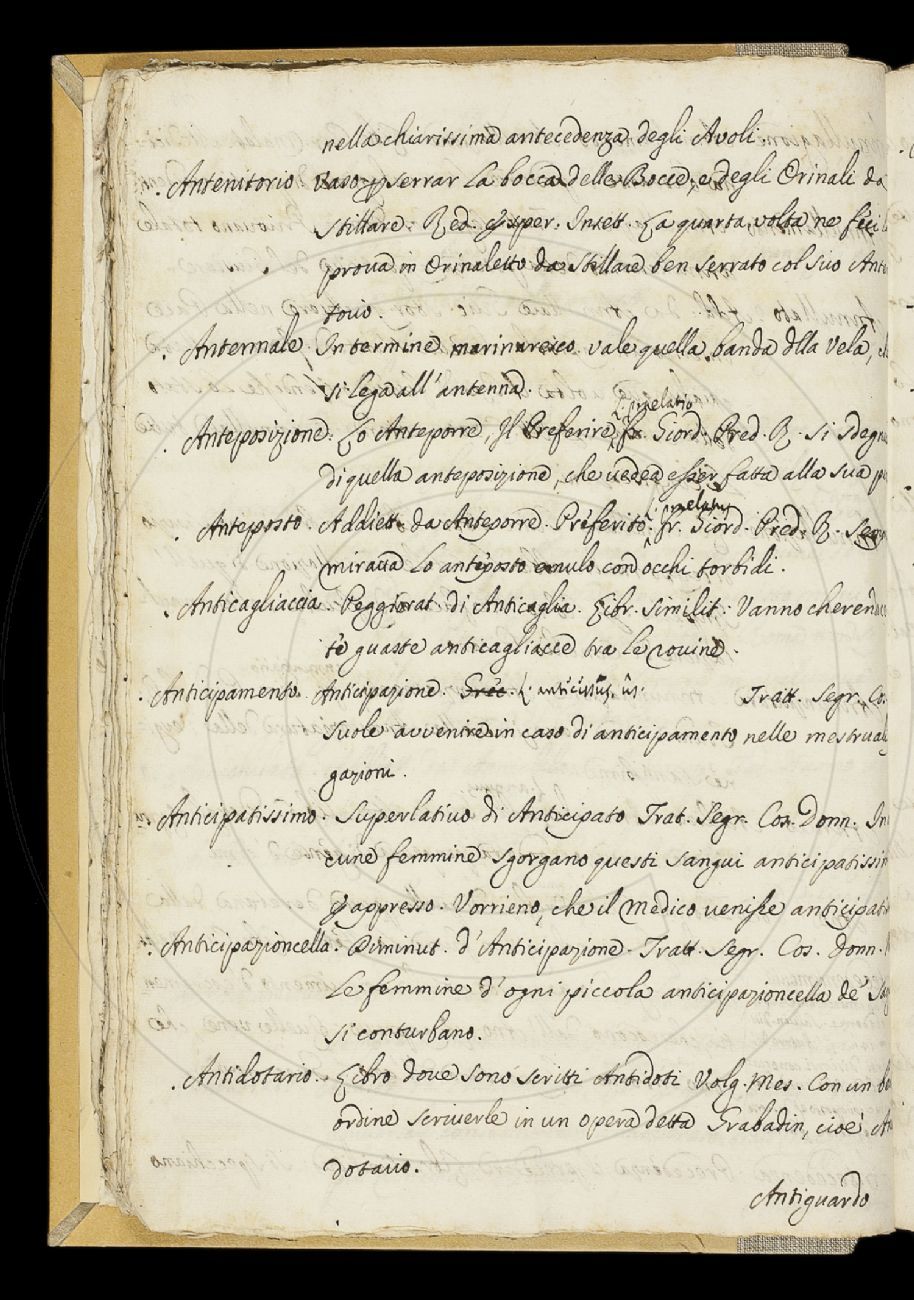 nella chiarissima antecedenza degli Avoli.
. Antenitorio. Vaso p serrar la bocca delle Bocce, e degli Orinali da
stillare. Red. esper. Insett. La quarta volta ne feci
prova in Orinaletto da stillare ben serrato col suo Ante
torio.
. Antennale. In termine marinaresco vale quella banda dlla Vela,
si lega all' antenna.
prelatio
. Anteposizione. Lo Anteporre, Il Preferire, Giord. Pred. R. Si sdegn
di quella anteposizione, che vedea esser fatta alla sua
prelatus
. Anteposto. Addiett. da Anteporre. Preferito. fr. Giord. Pred. R.
mirava lo anteposto emulo con occhi torbidi.
. Anticagliaccia. Peggiorat. di Anticaglia. Libr. Similit. Vanno cherend
te guaste anticagliacce tra le rovine.
. Anticipamento. Anticipazione. Grec. L. anticissus, us. Tratt. Segr. Co.
Suole avvenire in caso di anticipamento nelle mestrual
gazioni.
. Anticipatissimo. Superlativo di Anticipato Trat. Segr. Cos. Donn. In
cune femmine sgorgano questi sangui anticipatissi
E appresso. Vorrieno, che il Medico venisse anticipati
. Anticipazioncella. Diminut. d' Anticipazione. Tratt. Segr. Cos. donn.
Le femmine d' ogni piccola anticipazioncella de'
si conturbano.
. Antidotario. Libro dove sono scritti Antidoti Volg. Mes. Con un
ordine scriverle in un opera detta Grabadin, cioe'
dotario.
Antiguardo